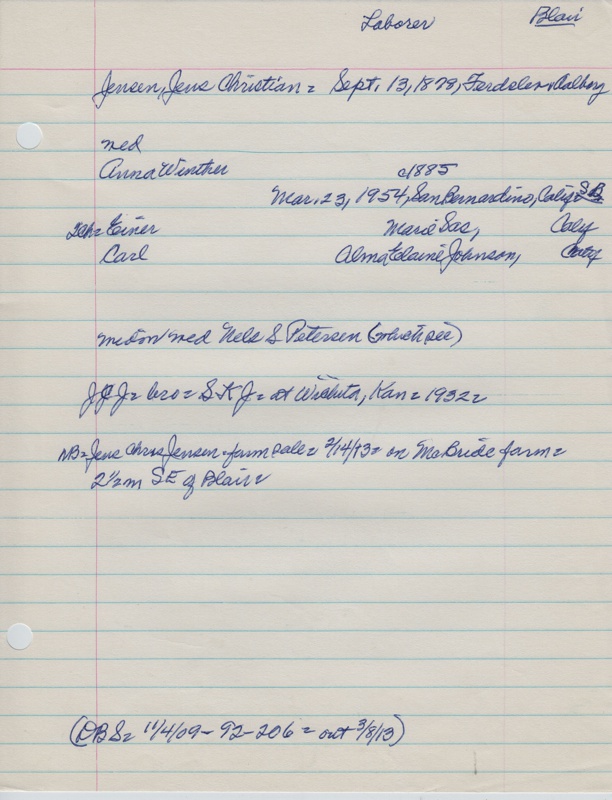 Laborer Blair
Jensen, Jens Christian = Sept. 13, 1878, Ferdslev, Aalborg
med
Anna Winther c1885
Mar. 23, 1954, San Bernardino, Calif = SB =
Ich = Einer Marie Sas, Calif
Carl Alma Elaine Johnson, Calif
med Nels S Petersen (which see)
JCJ = bro = S K J = at Wichita, Kan = 1932 =
NB = Jens Chris Jensen = farm sale = 2/14/13 = on McBride farm =
2 1/2 = m SE of Blair =
(DBS = 11/4/09 - 92 - 206 = out 3/8/13)